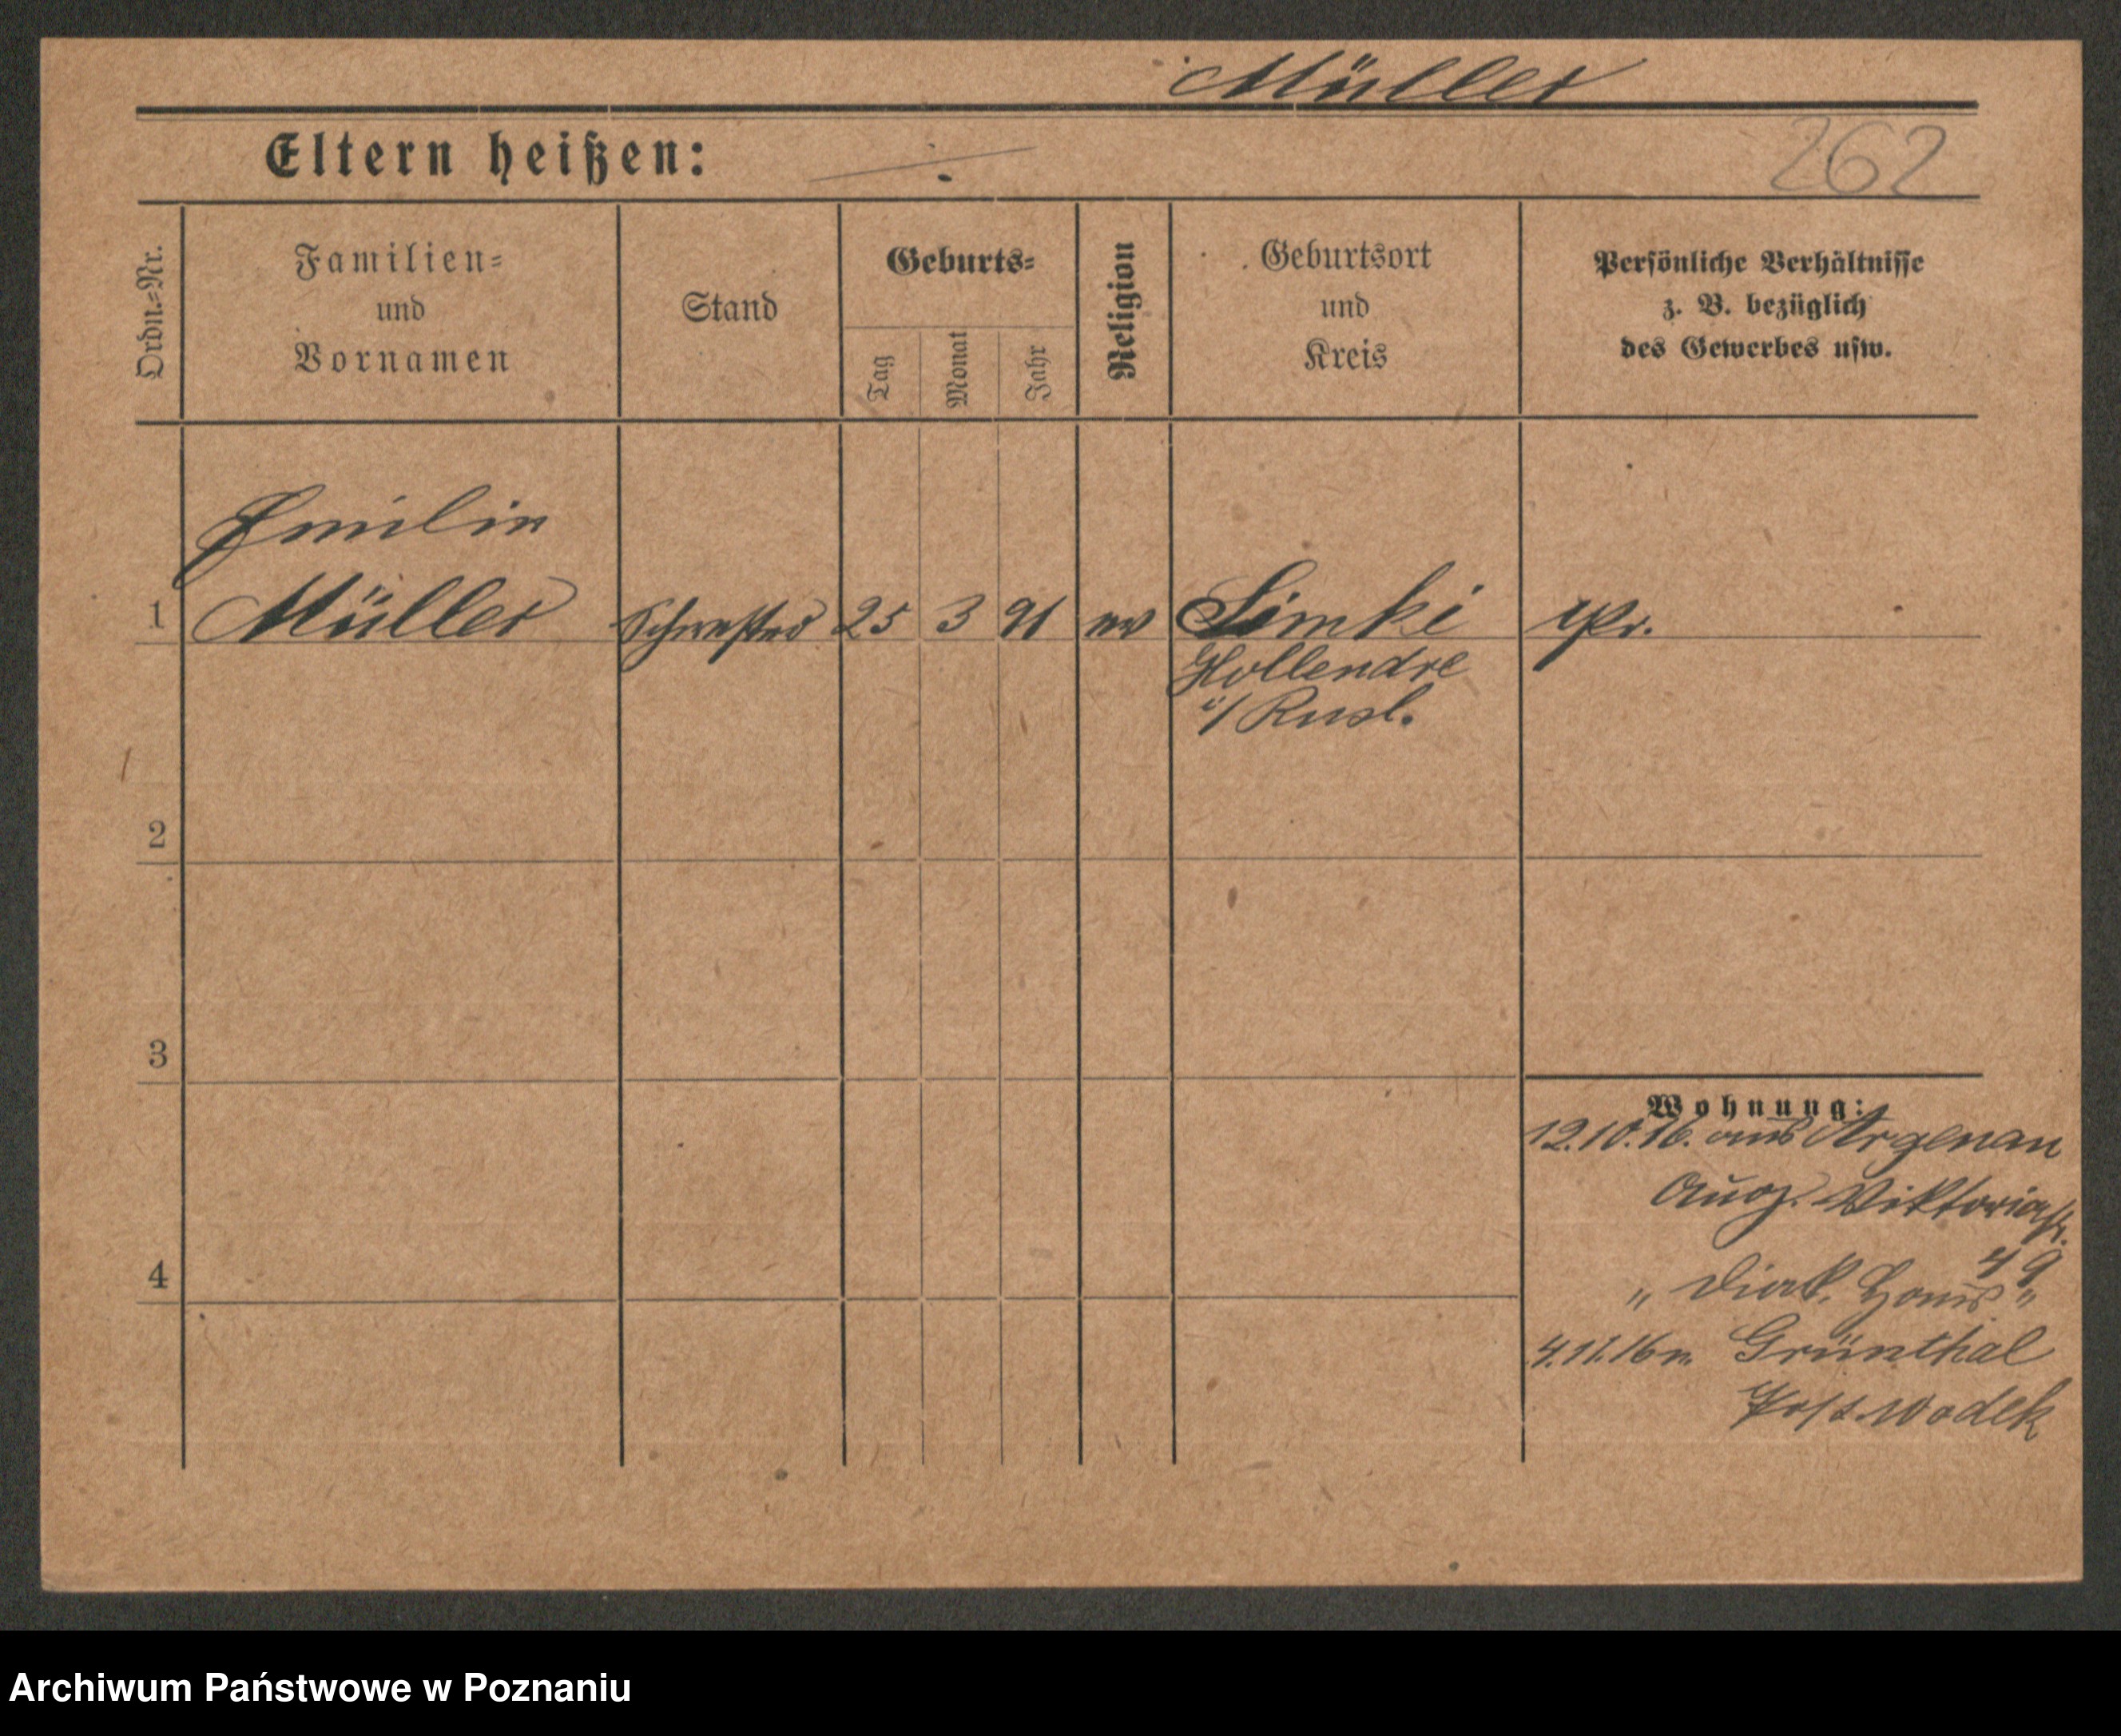 Müller
Eltern heißen: ÷
262
Ordn.=Nr.
Familien=
und
Vornamen
Stand
Geburts=
Tag
Monat
Jahr
Religion
Geburtsort
und
Kreis
Persönliche Verhältnisse
z. B. bezüglich
des Gewerbes usw.
Emilie
1 Müller Schwester 25 3 91 ev Simki Pr.
Hollendre
i/Rusl.
2
3
4
Wohnung:
12.10.16. aus Argenau
Aug. Viktoriastr.
49
„ Diak. Haus „
4.11.16 n. Grünthal
Post Wodek
Archiwum Państwowe w Poznaniu